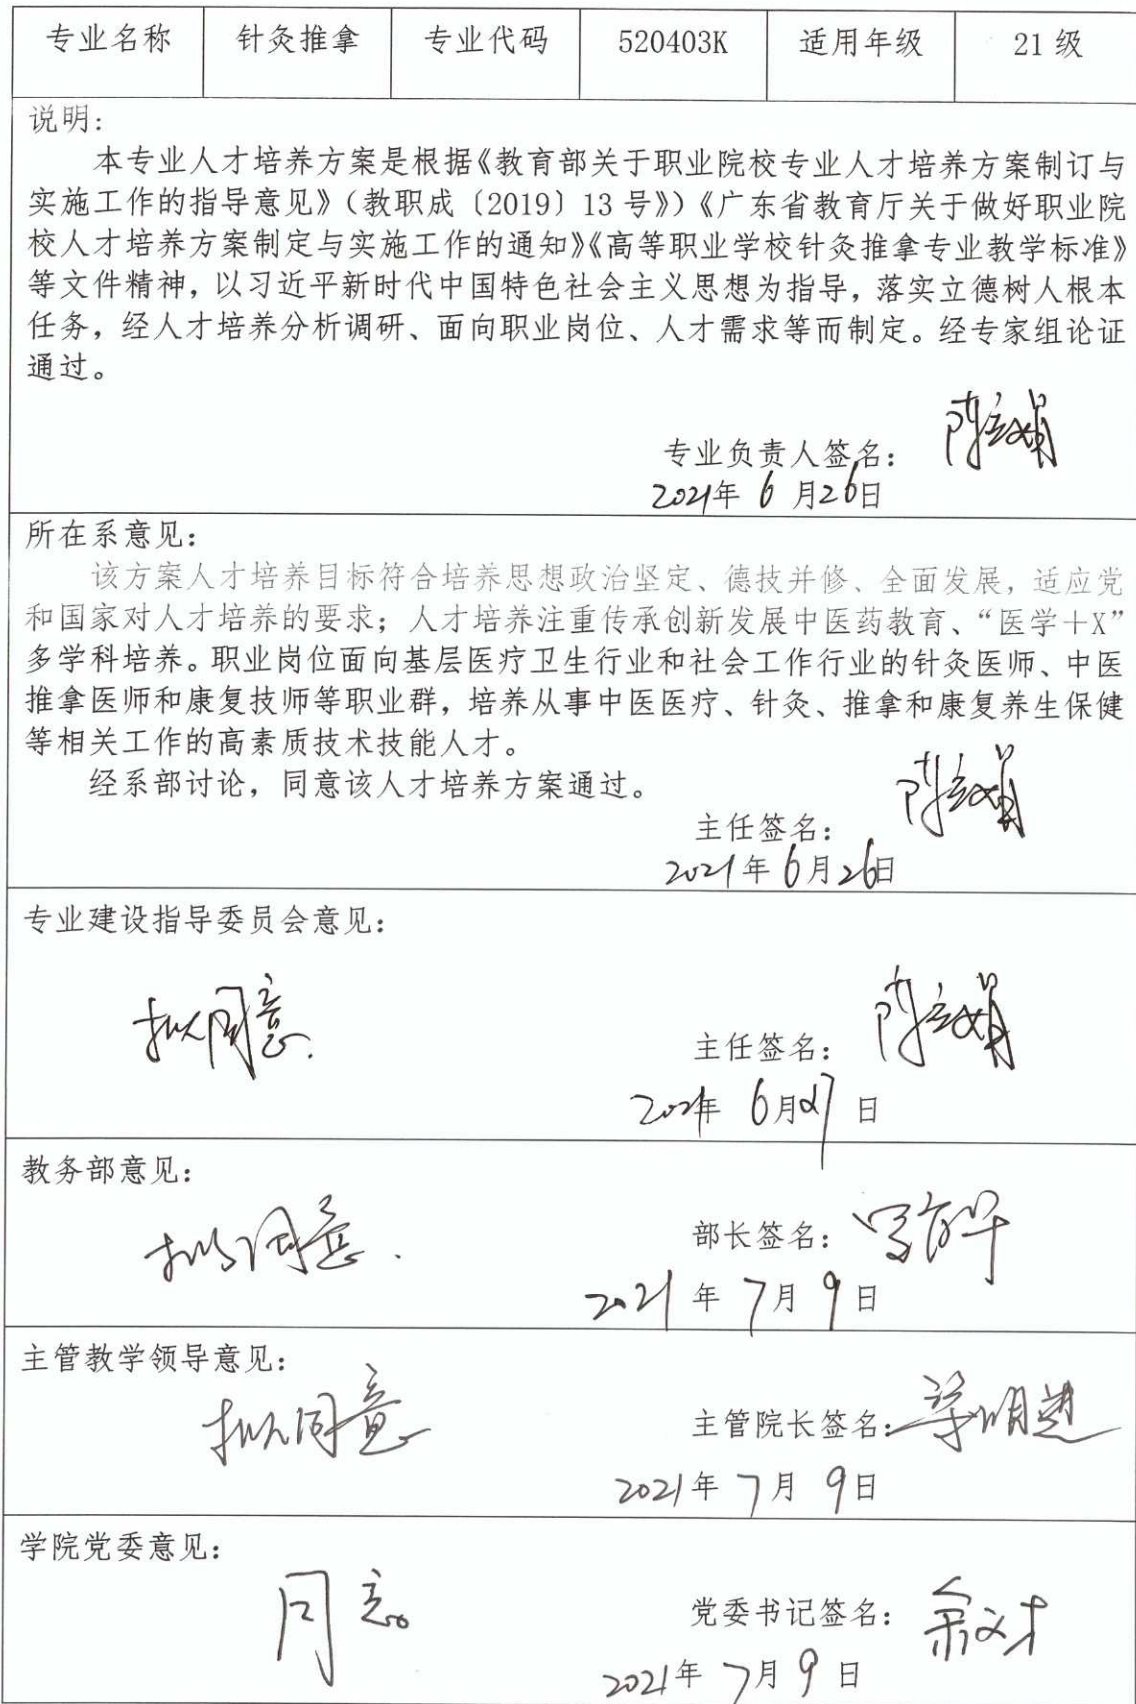 专业名称 针灸推拿 专业代码 520403K 适用年级 21 级
说明:
本专业人才培养方案是根据《教育部关于职业院校专业人才培养方案制订与
实施工作的指导意见》(教职成〔2019〕13 号》)《广东省教育厅关于做好职业院
校人才培养方案制定与实施工作的通知》《高等职业学校针灸推拿专业教学标准》
等文件精神,以习近平新时代中国特色社会主义思想为指导,落实立德树人根本
任务,经人才培养分析调研、面向职业岗位、人才需求等而制定。经专家组论证
通过。
专业负责人签名:
2021年 6 月26日
所在系意见:
该方案人才培养目标符合培养思想政治坚定、德技并修、全面发展,适应党
和国家对人才培养的要求;人才培养注重传承创新发展中医药教育、“医学+X”
多学科培养。职业岗位面向基层医疗卫生行业和社会工作行业的针灸医师、中医
推拿医师和康复技师等职业群,培养从事中医医疗、针灸、推拿和康复养生保健
等相关工作的高素质技术技能人才。
经系部讨论,同意该人才培养方案通过。
主任签名:
2021年 6月26日
专业建设指导委员会意见:
拟同意.
主任签名:
2021年 6月27 日
教务部意见:
拟同意.
部长签名:
2021 年 7月 9日
主管教学领导意见:
拟同意
主管院长签名:
2021年 7月 9日
学院党委意见:
同意。
党委书记签名:
2021年 7月 9 日